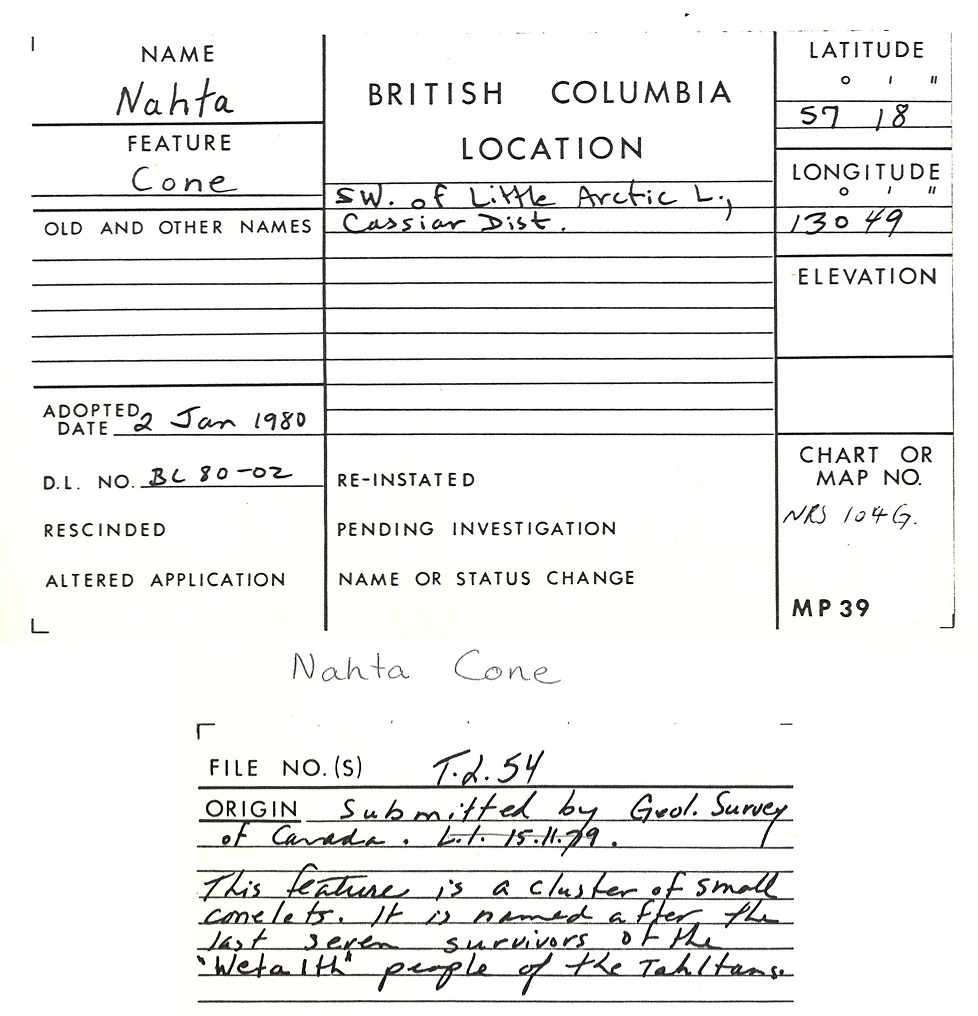 NAME
Nahta
FEATURE
Cone
OLD AND OTHER NAMES
ADOPTED
DATE 2 Jan 1980
D.L. NO. BC 80-02
RESCINDED
ALTERED APPLICATION
BRITISH COLUMBIA
LOCATION
SW. of Little Arctic L.,
Cassiar Dist.
RE-INSTATED
PENDING INVESTIGATION
NAME OR STATUS CHANGE
LATITUDE
° ' "
57 18
LONGITUDE
° ' "
130 49
ELEVATION
CHART OR
MAP NO.
104G.
MP 39
Nahta Cone
FILE NO.(S) T.2.54
ORIGIN Submitted by Geol. Survey
of Canada. 15.11.79.
This feature is a cluster of small
conelets. It is named after the
last seven survivors of the
"Wetalth" people of the Tahltans.